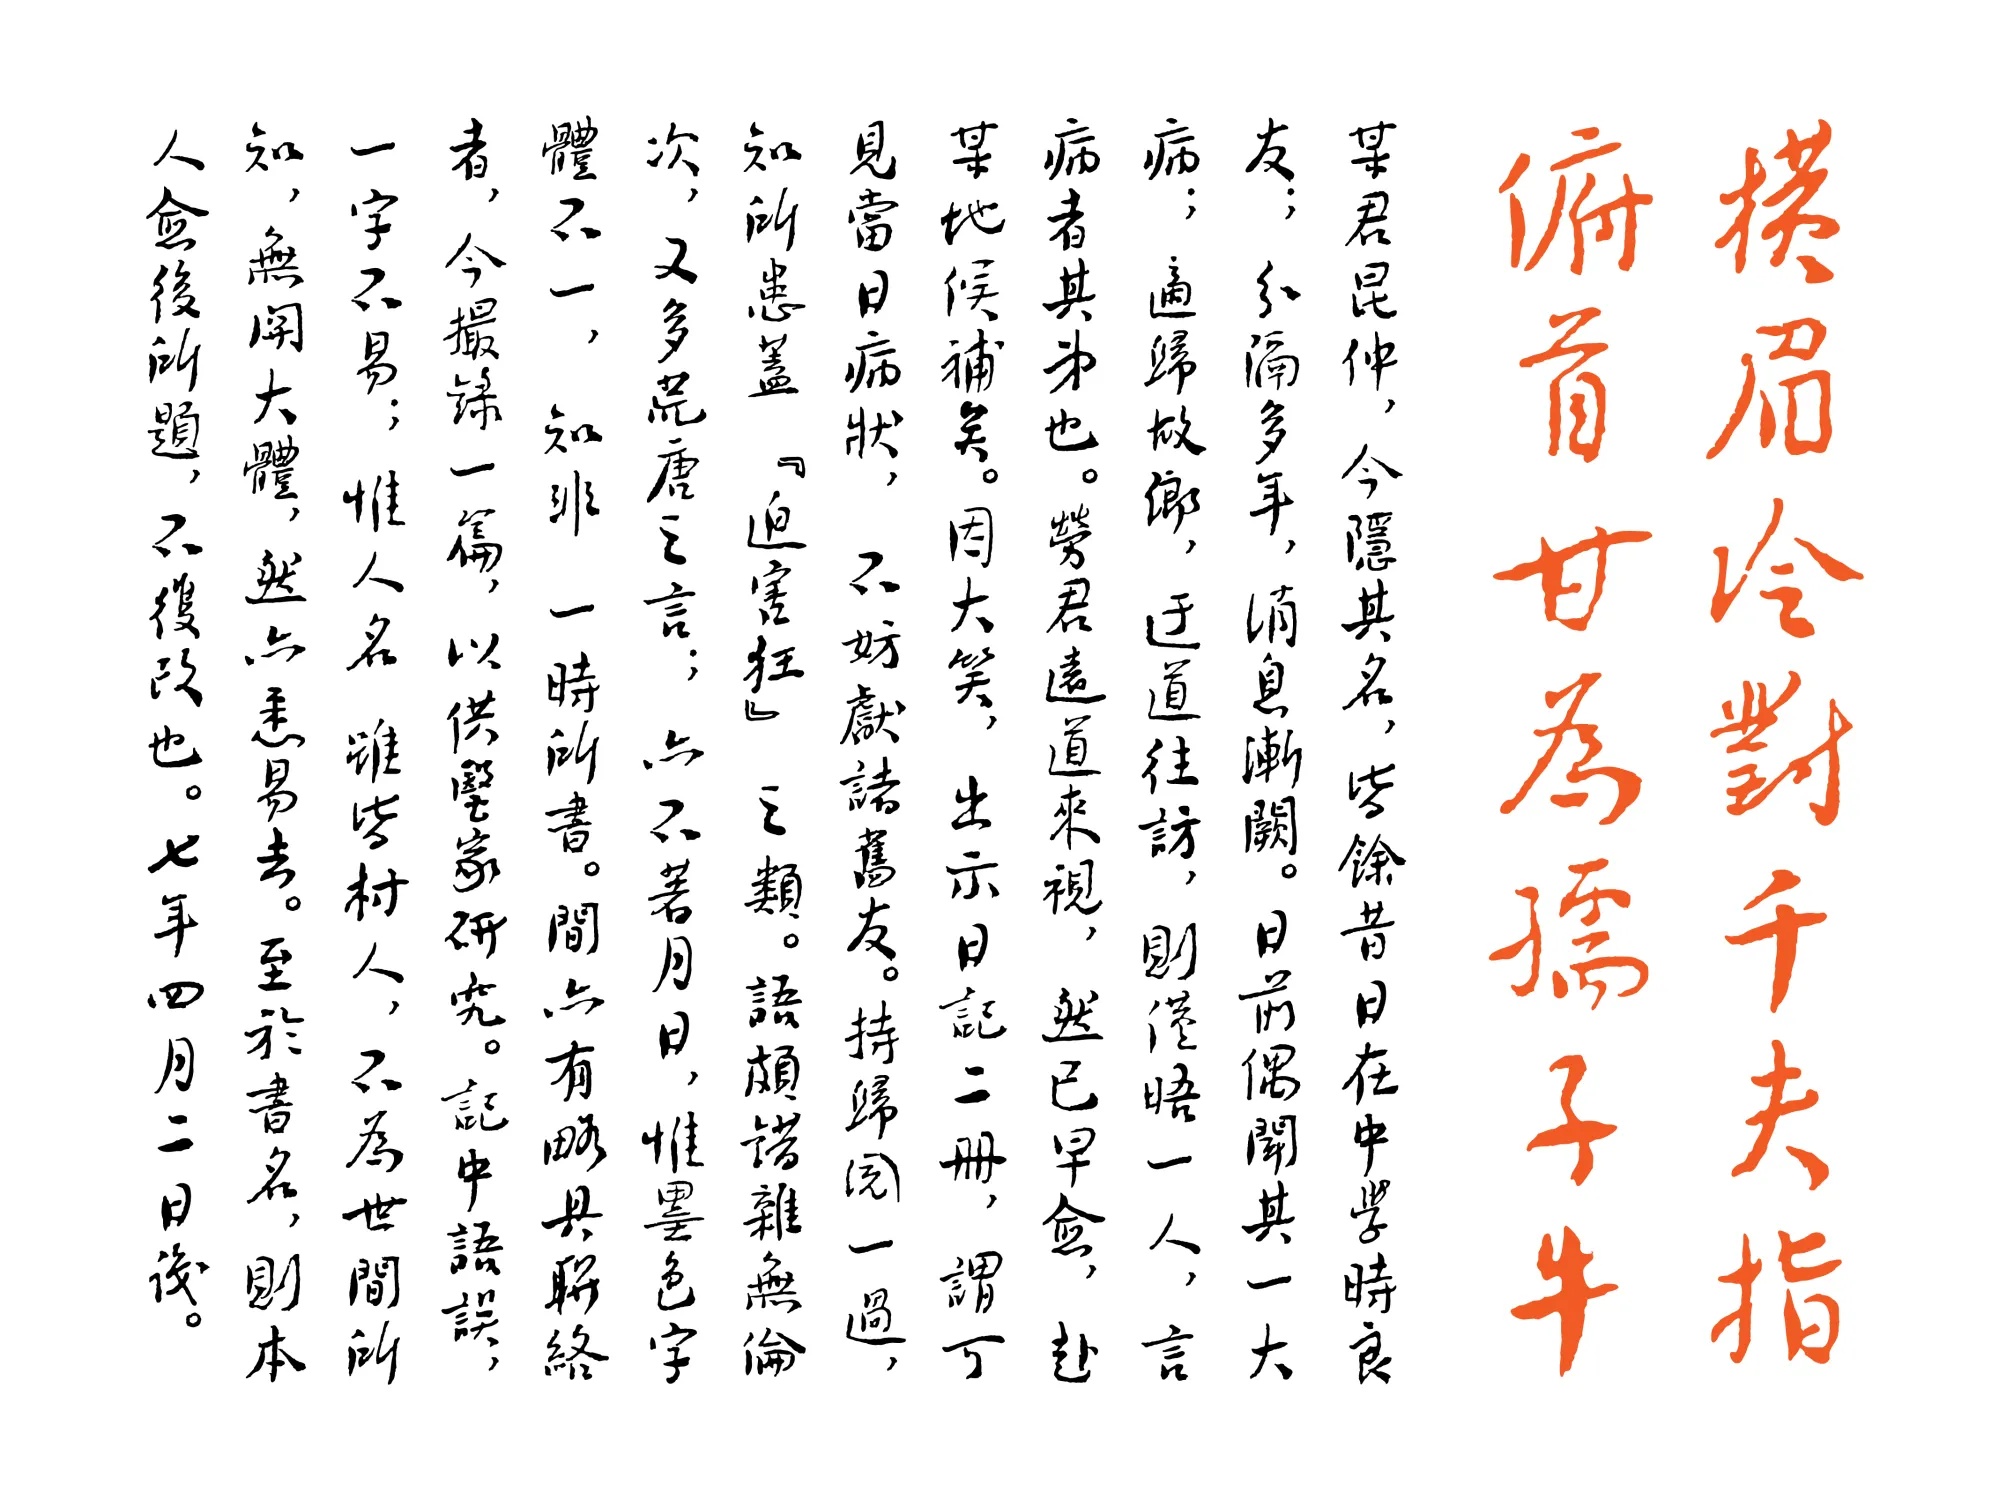 橫眉冷對千夫指
俯首甘為孺子牛
某君昆仲,今隱其名,皆餘昔日在中學時良
友;分隔多年,消息漸闕。日前偶聞其一大
病;適歸故鄉,迂道往訪,則僅晤一人,言
病者其弟也。勞君遠道來視,然已早愈,赴
某地候補矣。因大笑,出示日記二冊,謂可
見當日病狀,不妨獻諸舊友。持歸閱一過,
知所患蓋『迫害狂』之類。語頗錯雜無倫
次,又多荒唐之言;亦不著月日,惟墨色字
體不一,知非一時所書。間亦有略具聯絡
者,今撮錄一篇,以供醫家研究。記中語誤,
一字不易;惟人名雖皆村人,不為世間所
知,無關大體,然亦悉易去。至於書名,則本
人愈後所題,不復改也。七年四月二日識。